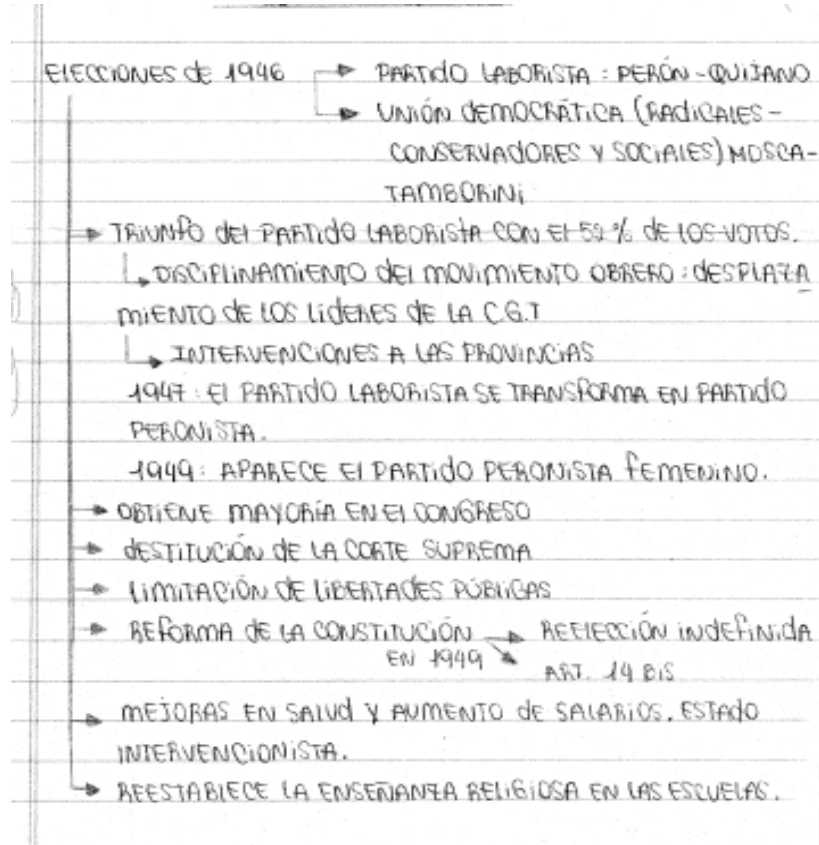 ELECCIONES de 1946 → PARTIDO LABORISTA : PERÓN - QUIJANO
→ UNIÓN DEMOCRÁTICA (RADICALES -
CONSERVADORES Y SOCIALES) MOSCA -
TAMBORINI
→ TRIUNFO DEL PARTIDO LABORISTA CON EL 52 % DE LOS VOTOS.
→ DISCIPLINAMIENTO DEL MOVIMIENTO OBRERO : DESPLAZA
MIENTO DE LOS LÍDERES DE LA C.G.T
→ INTERVENCIONES A LAS PROVINCIAS
1947 : EL PARTIDO LABORISTA SE TRANSFORMA EN PARTIDO
PERONISTA.
1949 : APARECE EL PARTIDO PERONISTA FEMENINO.
→ OBTIENE MAYORÍA EN EL CONGRESO
→ DESTITUCIÓN DE LA CORTE SUPREMA
→ LIMITACIÓN DE LIBERTADES PÚBLICAS
→ REFORMA DE LA CONSTITUCIÓN → REELECCIÓN INDEFINIDA
EN 1949 → ART. 14 BIS
→ MEJORAS EN SALUD Y AUMENTO DE SALARIOS. ESTADO
INTERVENCIONISTA.
→ REESTABLECE LA ENSEÑANZA RELIGIOSA EN LAS ESCUELAS.